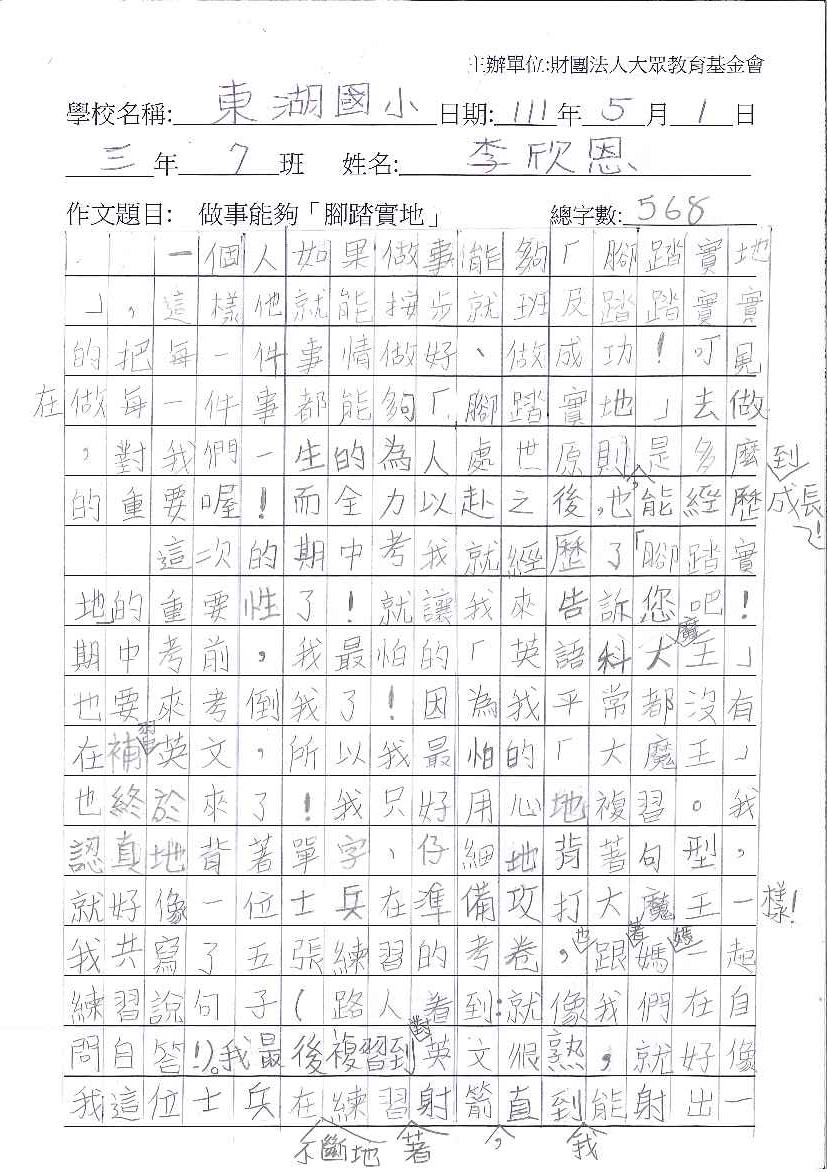 主辦單位:財團法人大眾教育基金會
學校名稱: 東湖國小 日期: 111 年 5 月 1 日
三 年 7 班 姓名: 李欣恩
作文題目: 做事能夠「腳踏實地」 總字數: 568
一個人如果做事能夠「腳踏實地
」,這樣他就能按步就班及踏踏實實
的把每一件事情做好、做成功!可見
在做每一件事都能夠「腳踏實地」去做
,對我們一生的為人處世原則,是多麼到
的重要喔!而全力以赴之後,也能經歷成長!
這次的期中考我就經歷了「腳踏實
地」的重要性了!就讓我來告訴您吧!
期中考前,我最怕的「英語科大魔王」
也要來考倒我了!因為我平常都沒有
在補習英文,所以我最怕的「大魔王」
也終於來了!我只好用心地複習。我
認真地背著單字、仔細地背著句型,
就好像一位士兵在準備攻打大魔王一樣!
我共寫了五張練習的考卷,也跟著媽媽一起
練習說句子(路人看到:就像我們在自
問自答!)。我最後複習到對英文很熟,就好像
我這位士兵在不斷地練習著射箭,直到我能射出一